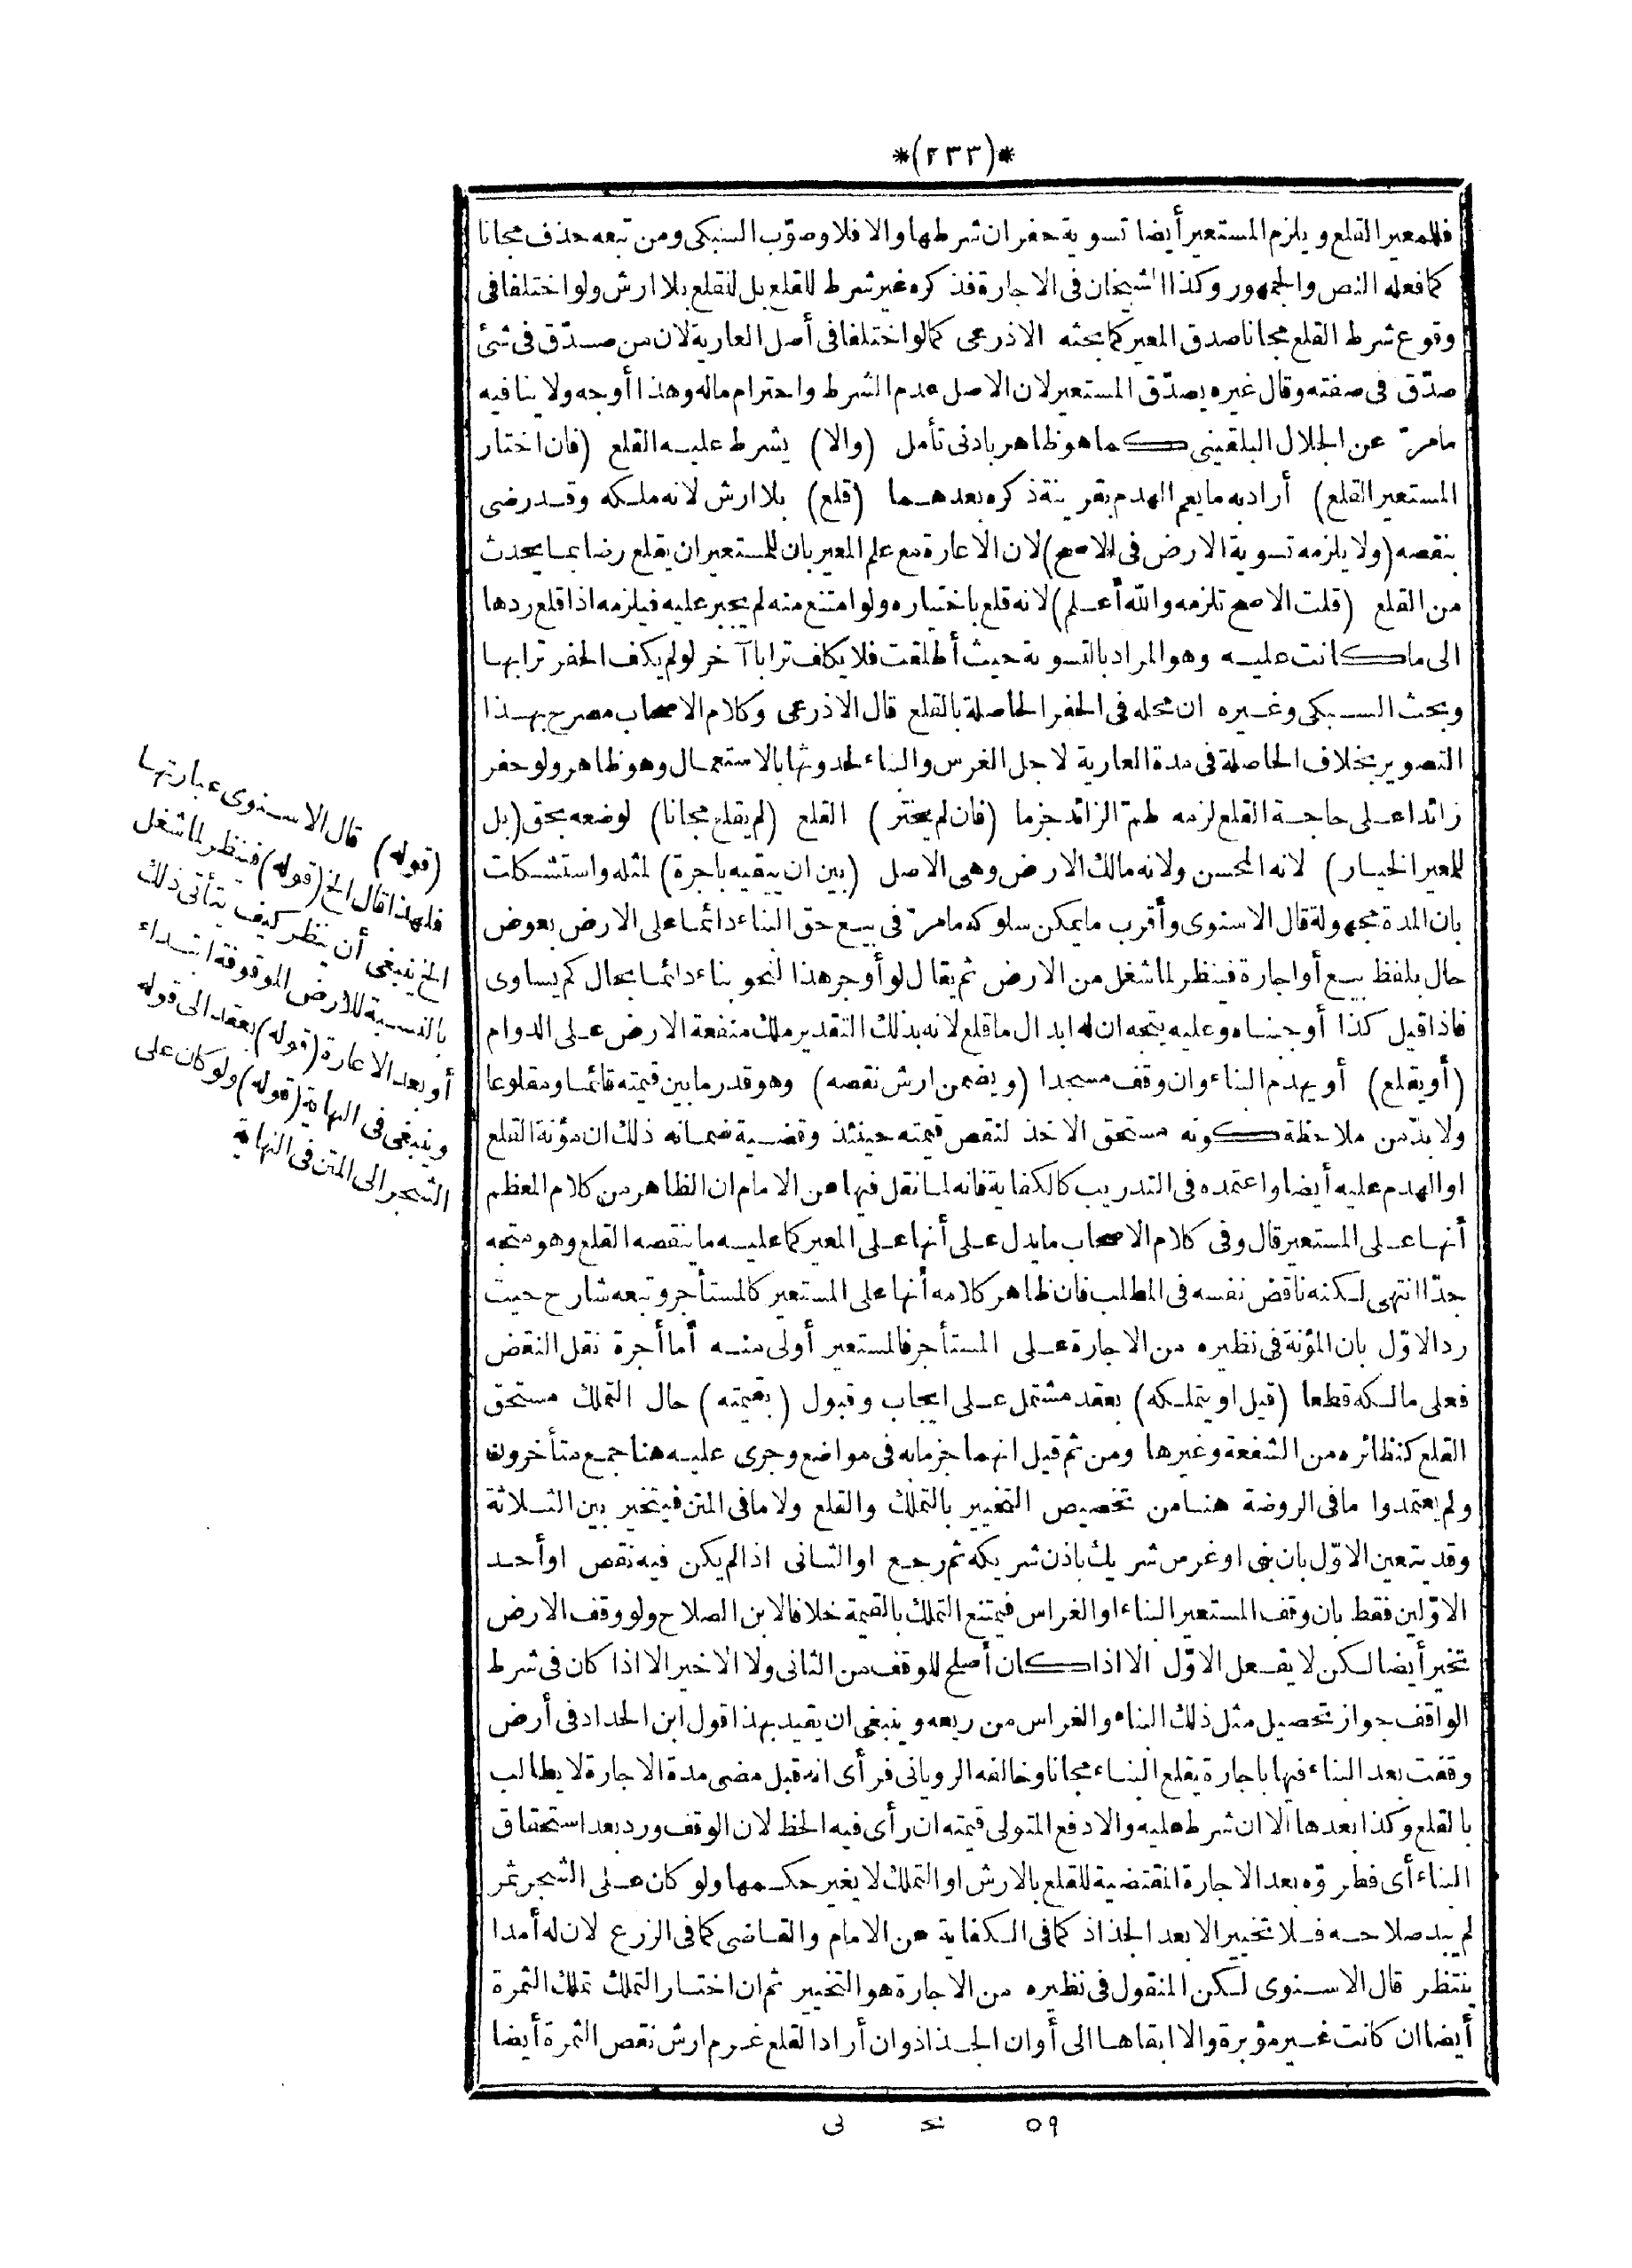 *(٢٣٣)*
فللمعير القلع ويلزم المستعير أيضا تسوية حفر ان شرطها والا فلا وصوّب السبكى ومن تبعه حذف مجانا
كما فعله النص والجمهور وكذا الشيخان فى الاجارة فذكره غير شرط للقلع بل لنقلع بلا ارش ولو اختلفا فى
وقوع شرط القلع مجانا صدق المعير كما بحثه الاذرعى كما لو اختلفا فى أصل العارية لان من صدّق فى شئ
صدّق فى صفته وقال غيره يصدّق المستعير لان الاصل عدم الشرط واحترام ماله وهذا أوجه ولا ينافيه
مامرّ عن الجلال البلقينى كما هو ظاهر بادنى تأمل (والا) يشرط عليه القلع (فان اختار
المستعير القلع) أراد به ما يعم الهدم بقرينة ذكره بعدهما (قلع) بلا ارش لانه ملكه وقد رضى
بنقصه (ولا يلزمه تسوية الارض فى الاصح) لان الاعارة مع علم المعير بان للمستعير ان يقلع رضا بما يحدث
من القلع (قلت الاصح تلزمه والله أعلم) لانه قلع باختياره ولو امتنع منه لم يجبر عليه فيلزمه اذا قلع ردها
الى ما كانت عليه وهو المراد بالتسوية حيث أطلقت فلا يكلف ترابا آخر لو لم يكف الحفر ترابها
وبحث السبكى وغيره ان محله فى الحفر الحاصلة بالقلع قال الاذرعى وكلام الاصحاب مصرح بهذا
التصوير بخلاف الحاصلة فى مدة العارية لاجل الغرس والبناء لحدوثها بالاستعمال وهو ظاهر ولو حفر
زائدا على حاجة القلع لزمه طمّ الزائد جزما (فان لم يختر) القلع (لم يقلع مجانا) لوضعه بحق (بل
للمعير الخيار) لانه المحسن ولانه مالك الارض وهى الاصل (بين ان يبقيه باجرة) لمثله واستشكلت
بان المدة مجهولة قال الاسنوى وأقرب ما يمكن سلوكه مامرّ فى بيع حق البناء دائما على الارض بعوض
حال بلفظ بيع أو اجارة فينظر لما شغل من الارض ثم يقال لو أوجر هذا لنحو بناء دائما بحال كم يساوى
فاذا قيل كذا أوجبناه وعليه يتجه ان له ابدال ما قلع لانه بذلك التقدير ملك منفعة الارض على الدوام
(أو يقلع) أو يهدم البناء وان وقف مسجدا (ويضمن ارش نقصه) وهو قدر ما بين قيمته قائما ومقلوعا
ولا بدّ من ملاحظة كونه مستحق الاخذ لنقص قيمته حينئذ وقضية ضمانه ذلك ان مؤنة القلع
او الهدم عليه أيضا واعتمده فى التدريب كالكفاية فانه لما نقل فيها عن الامام ان الظاهر من كلام المعظم
أنها على المستعير قال وفى كلام الاصحاب ما يدل على أنها على المعير كما عليه ما ينقصه القلع وهو متجه
جدّا انتهى لكنه ناقض نفسه فى المطلب فان ظاهر كلامه أنها على المستعير كالمستأجر وتبعه شارح حيث
رد الاوّل بان المؤنة فى نظيره من الاجارة على المستأجر فالمستعير أولى منه أما أجرة نقل النقض
فعلى مالكه قطعا (قيل او يتملكه) بعقد مشتمل على ايجاب وقبول (بقيمته) حال التملك مستحق
القلع كنظائره من الشفعة وغيرها ومن ثم قيل انهما جزما به فى مواضع وجرى عليه هنا جمع متأخرون
ولم يعتمدوا ما فى الروضة هنا من تخصيص التخيير بالتملك والقلع ولا ما فى المتن فيتخير بين الثلاثة
وقد يتعين الاوّل بان بنى او غرس شريك باذن شريكه ثم رجع او الثانى اذا لم يكن فيه نقص او أحد
الاوّلين فقط بان وقف المستعير البناء او الغراس فيمتنع التملك بالقيمة خلافا لابن الصلاح ولو وقف الارض
تخير أيضا لكن لا يفعل الاوّل الا اذا كان أصلح للوقف من الثانى ولا الاخير الا اذا كان فى شرط
الواقف جواز تحصيل مثل ذلك البناء والغراس من ريعه وينبغى ان يقيد بهذا قول ابن الحداد فى أرض
وقفت بعد البناء فيها باجارة يقلع البناء مجانا وخالفه الرويانى فرأى انه قبل مضى مدة الاجارة لا يطالب
بالقلع وكذا بعدها الا ان شرط عليه والا دفع المتولى قيمته ان رأى فيه الحظ لان الوقف ورد بعد استحقاق
البناء أى فطروّه بعد الاجارة المقتضية للقلع بالارش او التملك لا يغير حكمها ولو كان على الشجر ثمر
لم يبد صلاحه فلا تخيير الا بعد الجذاذ كما فى الكفاية عن الامام والقاضى كما فى الزرع لان له أمدا
ينتظر قال الاسنوى لكن المنقول فى نظيره من الاجارة هو التخيير ثم ان اختار التملك تملك الثمرة
أيضا ان كانت غير مؤبرة والا ابقاها الى أوان الجذاذ وان أراد القلع غرم ارش نقص الثمرة أيضا
(قوله) قال الاسنوى عبارتها
فلهذا قال الخ (قوله) فينظر لما شغل
الخ ينبغى أن ينظر كيف يتأتى ذلك
بالنسبة للارض الموقوفة ابتداء
أو بعد الاعارة (قوله) بعقد الى قوله
وينبغى فى النهاية (قوله) ولو كان على
الشجر الى المتن فى النهاية
٥٩ نحـ لى